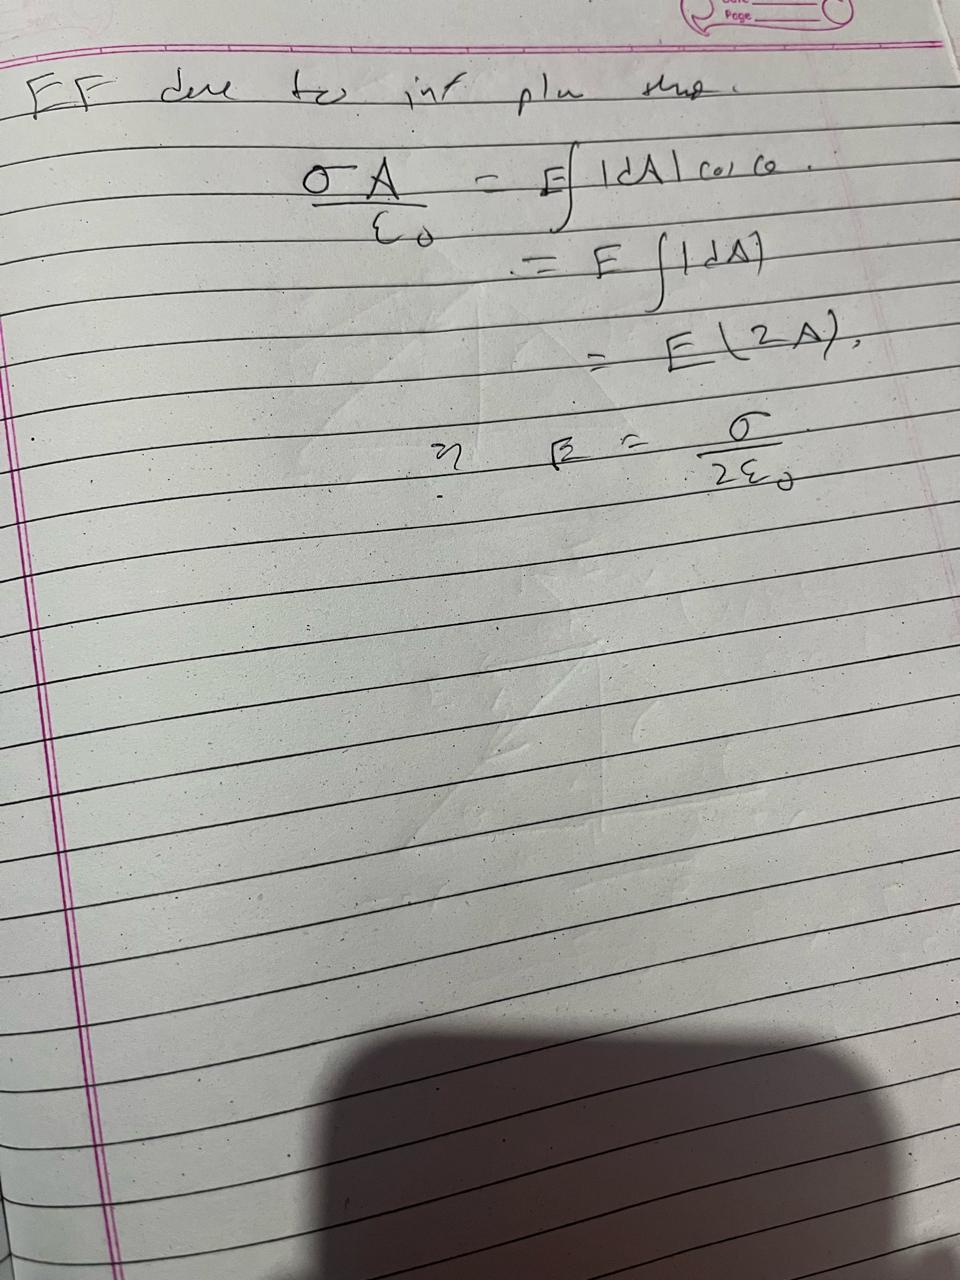 Page
EF due to inf
σA/ε₀ = E∫|dA| cos
= E ∫|dA|
= E(2A).
E = σ/2ε₀